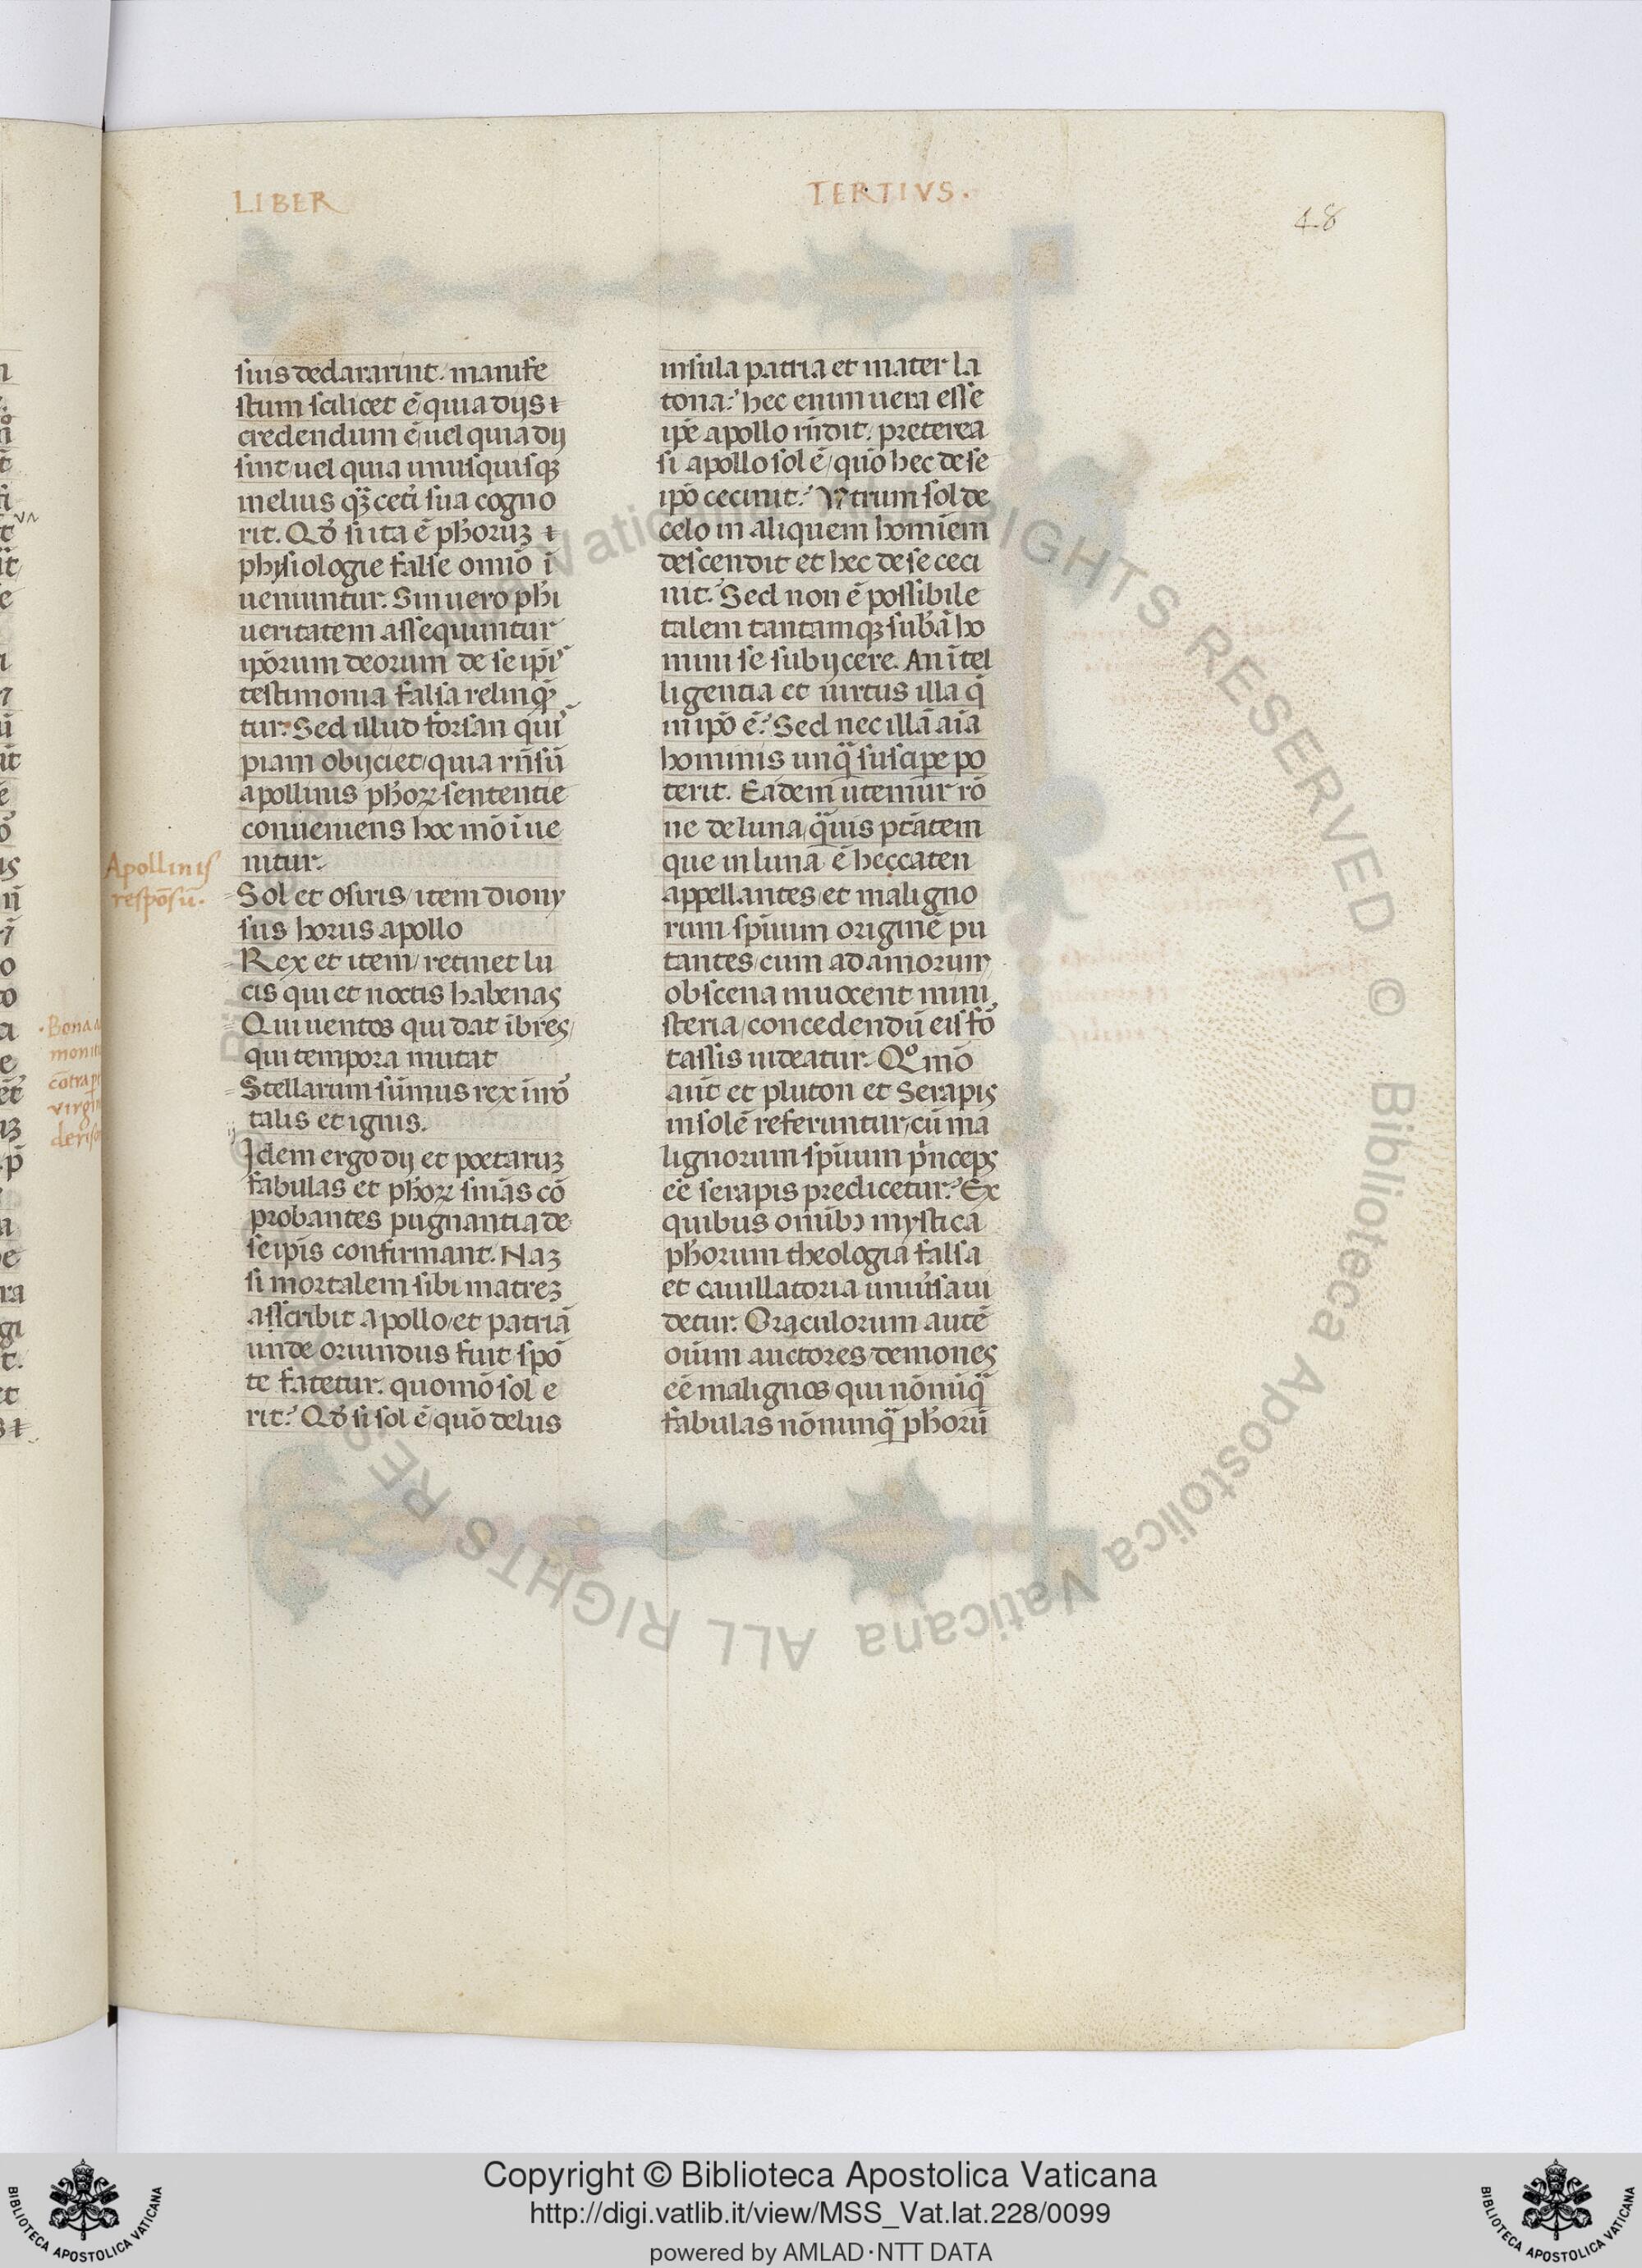 LIBER
TERTIVS.
48
suis declararint. manife
stum scilicet ē quia dijs ⁊
credendum ē uel quia dij
sint uel quia unusquisqꝫ
melius qꝫ̄ ceti sua cogno
rit. Qđ si ita ē ph̄oruꝫ ⁊
physiologie false omīo ī
ueniuntur. Sin uero ph̄i
ueritatem assequuntur
ip̄orum deorum de se ip̄i
testimonia falsa relinqͣ̄
tur. Sed illud forsan qui
piam obijciet quia rn̄sū
apollinis ph̄oꝝ sententie
conueniens hoc mō īue
nitur.
Apollinis
respōsū.
Sol et osiris item diony
sus horus apollo
Rex et item retinet lu
cis qui et noctis habenas
Qui uentos qui dat ībres
qui tempora mutat
Stellarum sūmus rex imō
talis et ignis.
Idem ergo dij et poetaruꝫ
fabulas et ph̄oꝝ sniās cō
probantes pugnantia de
se ip̄is confirmant. Naꝫ
si mortalem sibi matreꝫ
asscribit apollo et patriā
unde oriundus fuit spō
te fatetur. quomō sol e
rit? Qđ si sol ē quō delus
insula patria et mater la
tona? hec enim uera esse
ip̄e apollo rn̄dit. preterea
si apollo sol ē quō hec de se
ip̄o cecinit? Vtrum sol de
celo in aliquem homīem
descendit et hec de se ceci
nit? Sed non ē possibile
talem tantamqꝫ sub̄ā ho
mini se subijcere. An ītel
ligentia et uirtus illa q̄
in ip̄o ē? Sed nec illā aīa
hominis unqͣ̄ suscipe po
terit. Eadem utemur rō
ne de luna qͣ̄uis ptātem
que in luna ē heccaten
appellantes et maligno
rum sp̄iuum originē pu
tantes cum ad amorum
obscena inuocent mini
steria concedendū eis fō
tassis uideatur. Qº mō
aūt et pluton et Serapis
in solē referuntur cū ma
lignorum sp̄iuum p̄nceps
eē serapis predicetur? Ex
quibus omībꝰ mystica
ph̄orum theologia falsa
et cauillatoria uniūsa ui
detur. Oraculorum autē
oīum auctores demones
eē malignos qui nōnūqͣ̄
fabulas nōnunqͣ̄ ph̄orū
Copyright © Biblioteca Apostolica Vaticana
http://digi.vatlib.it/view/MSS_Vat.lat.228/0099
powered by AMLAD·NTT DATA
BIBLIOTECA APOSTOLICA VATICANA
BIBLIOTECA APOSTOLICA VATICANA